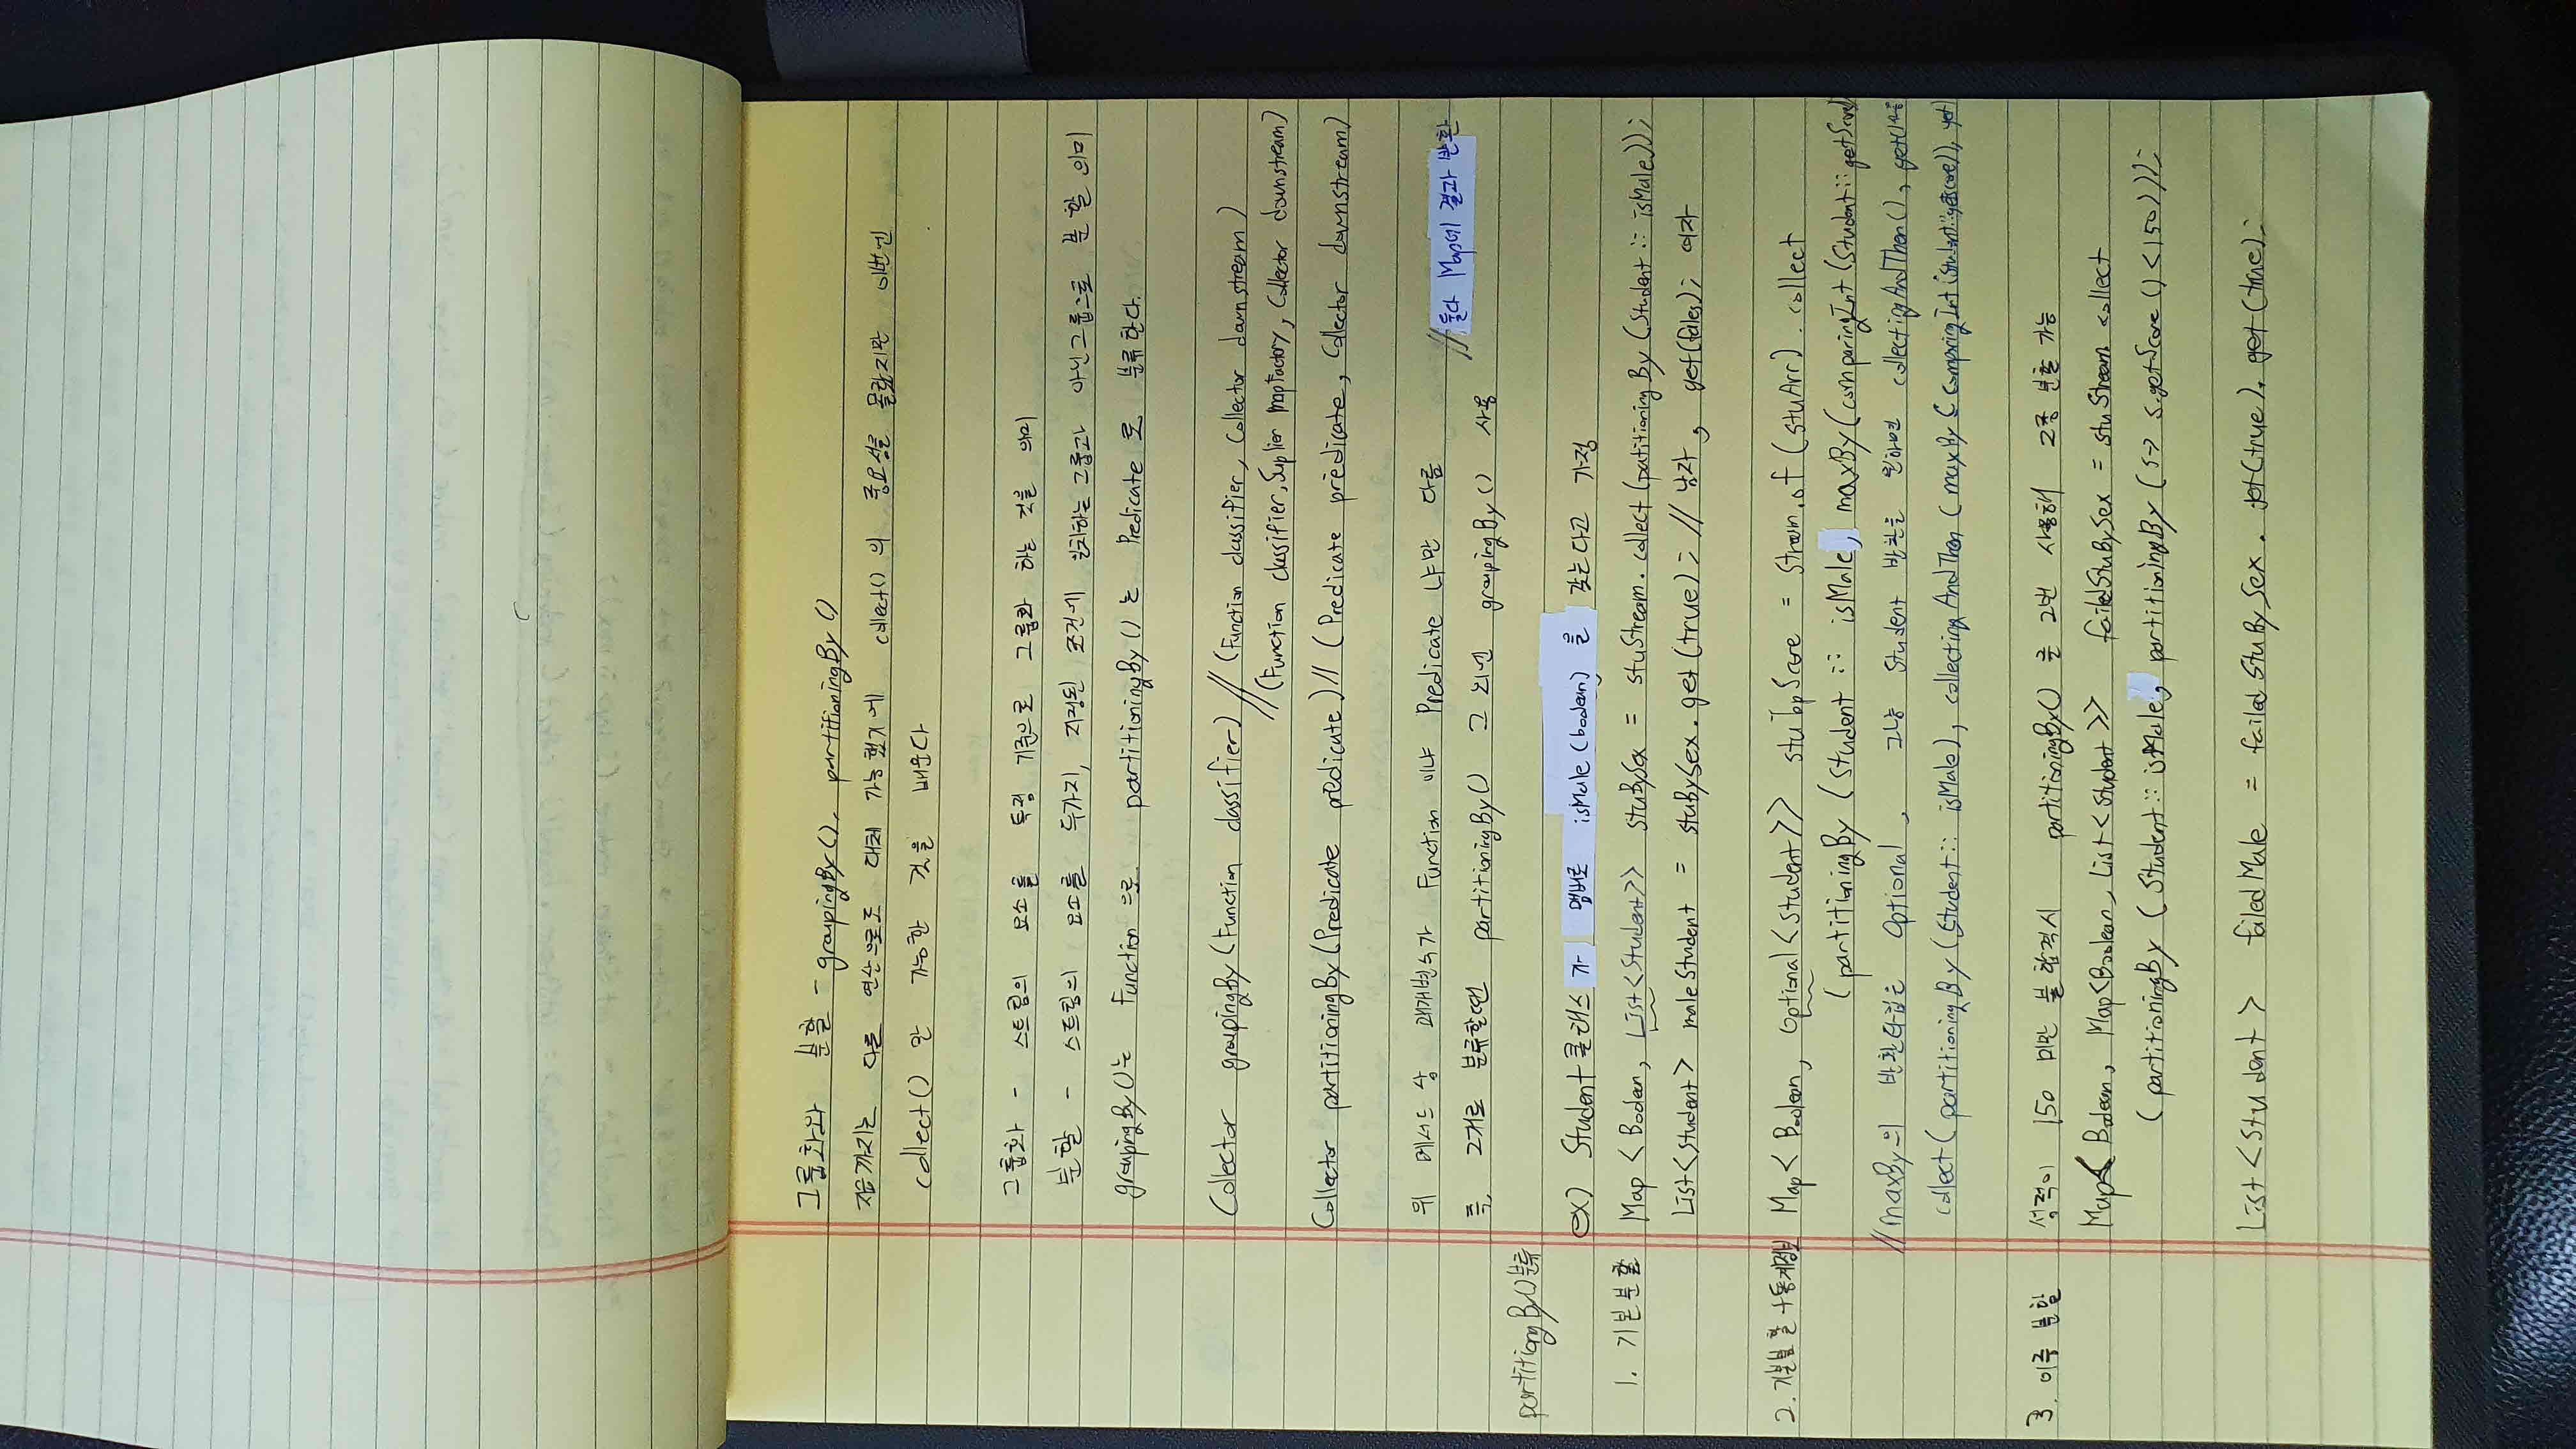 그룹화와 분할 - groupingBy(), partitioningBy()
지금까지는 다른 연산으로도 대체 가능했기에 collect()의 중요성을 몰랐지만 이번엔
collect() 만 가능한 것을 배운다
그룹화 - 스트림의 요소를 특정 기준으로 그룹화 하는 것을 의미
분할 - 스트림의 요소를 두가지, 지정된 조건에 일치하는 그룹과 아닌그룹으로 분할 의미
groupingBy()는 Function 으로 partitioningBy()는 Predicate 로 분류한다.
Collector groupingBy(Function classifier) // (Function classifier, Collector downstream)
// (Function classifier, Suplier mapFactory, Collector downstream)
Collector partitioningBy(Predicate predicate) // (Predicate predicate, Collector downstream)
위 메서드 상 매개변수가 Function 이냐 Predicate 냐만 다름
// 둘다 Map에 결과 반환
즉, 2개로 분류할땐 partitioningBy() 그 외엔 groupingBy() 사용
partitiongBy()분류
ex) Student 클래스 가 맴버로 isMale (boolean) 을 갖는다고 가정
1. 기본분할 Map < Boolean, List<Student>> stuBySex = stuStream. collect (patitioningBy (Student :: isMale));
List<student> maleStudent = stuBySex. get (true) ; // 남자, get(fales); 여자
2. 기본분할 +통계정보 Map < Boolean, Optional <Student>> stuTopScore = Stream.of (stuArr) . collect
(partitioningBy (Student :: isMale, maxBy (comparingInt (Student::getScore)
// maxBy의 반환타입은 Optional, 그냥 Student 반환을 원하면 collectingAndThen(), get()사용
collect( partitioningBy (Student:: isMale), collectingAndThen (maxBy ( ComparingInt (Student::getscore)), get)
3. 이중 분할 성적이 150 미만 불합격시 partitioningBy() 를 2번 사용해 2중 분할 가능
Map< Boolean, Map<Boolean, List<Student>> failedStuBySex = stuStream collect
(partitioningBy (Student:: isMale, partitioningBy (s-> s.getScore () <150)));
List <Student> failedMale = failedStuBySex. get(true). get(true);